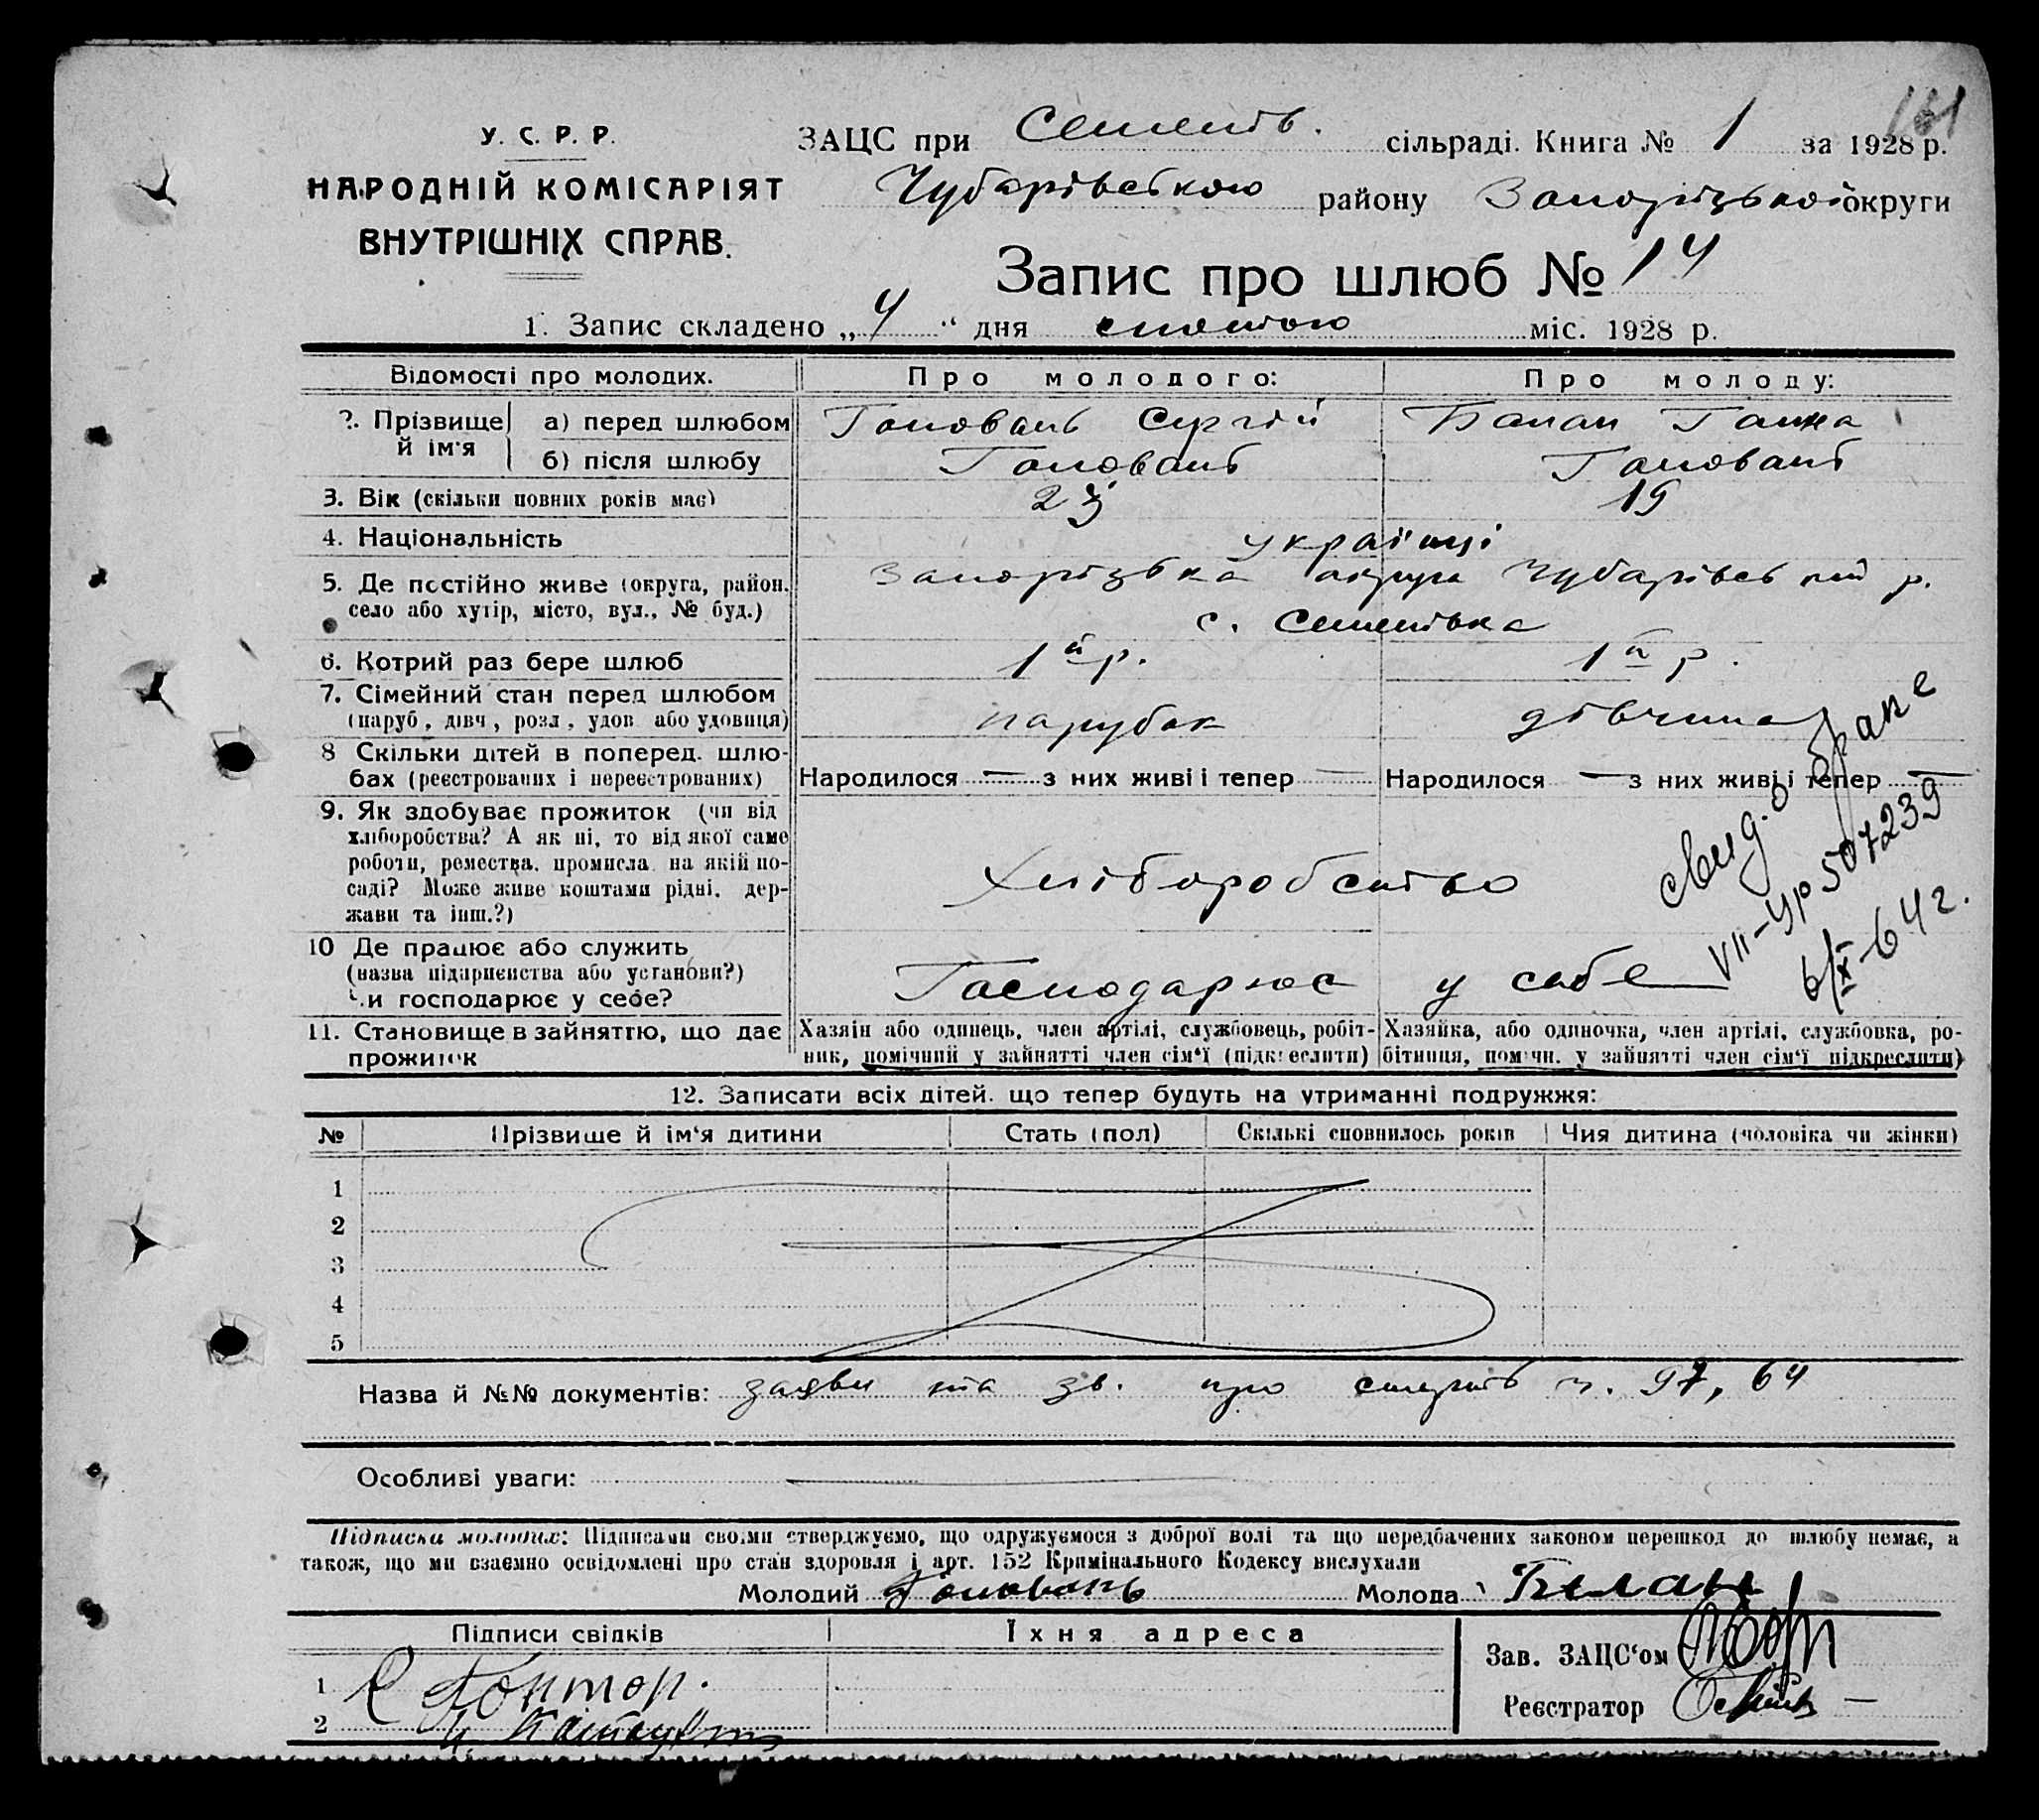 161
У. С. Р. Р.
НАРОДНІЙ КОМІСАРІЯТ
ВНУТРІШНІХ СПРАВ.
ЗАЦС при Семенів. сільраді. Книга № 1 за 1928 р.
Чубарівського району Запорізької округи
Запис про шлюб № 14
1. Запис складено „4" дня лютого міс. 1928 р.
Відомості про молодих. Про молодого: Про молоду:
2. Прізвище й ім'я а) перед шлюбом Головань Сергій Балан Ганна
б) після шлюбу Головань Головань
3. Вік (скільки повних років має) 23 19
4. Національність українці
5. Де постійно живе (округа, район, село або хутір, місто, вул., № буд.) Запорізька округа Чубарівський р.
с. Семенівка
6. Котрий раз бере шлюб 1й р. 1й р.
7. Сімейний стан перед шлюбом
(паруб., дівч., розл., удов. або удовиця) парубок дівчина
8 Скільки дітей в поперед. шлю-
бах (реєстрованих і нереєстрованих) Народилося — з них живі і тепер — Народилося — з них живі і тепер —
9. Як здобуває прожиток (чи від
хліборобства? А як ні, то від якої саме
роботи, ремества, промисла, на якій по-
саді? Може живе коштами рідні, дер-
жави та інш.?) Хліборобство
10 Де працює або служить
(назва підприємства або установи?)
Чи господарює у себе? Господарює у себе
свид. о браке
VII-УР 507239
6/IX-64 г.
11. Становище в зайняттю, що дає
прожиток
Хазяїн або одинець, член артілі, службовець, робіт-
ник, помічний у зайнятті член сім'ї (підкреслити)
Хазяйка, або одиночка, член артілі, службовка, ро-
бітниця, помічн. у зайнятті член сім'ї підкреслити)
12. Записати всіх дітей, що тепер будуть на утриманні подружжя:
№ Прізвище й ім'я дитини Стать (пол) Скількі сповнилось років Чия дитина (чоловіка чи жінки)
1
2
3
4
5
Назва й №№ документів: заяви та зв. про смерть ч. 97, 64
Особливі уваги:
Підписка молодих: Підписами своїми стверджуємо, що одружуємося з доброї волі та що передбачених законом перешкод до шлюбу немає, а
також, що ми взаємно освідомлені про стан здоровля і арт. 152 Кримінального Кодексу вислухали
Молодий Головань Молода Білан
Підписи свідків Їхня адреса
Зав. ЗАЦС'ом
1
Реєстратор
2